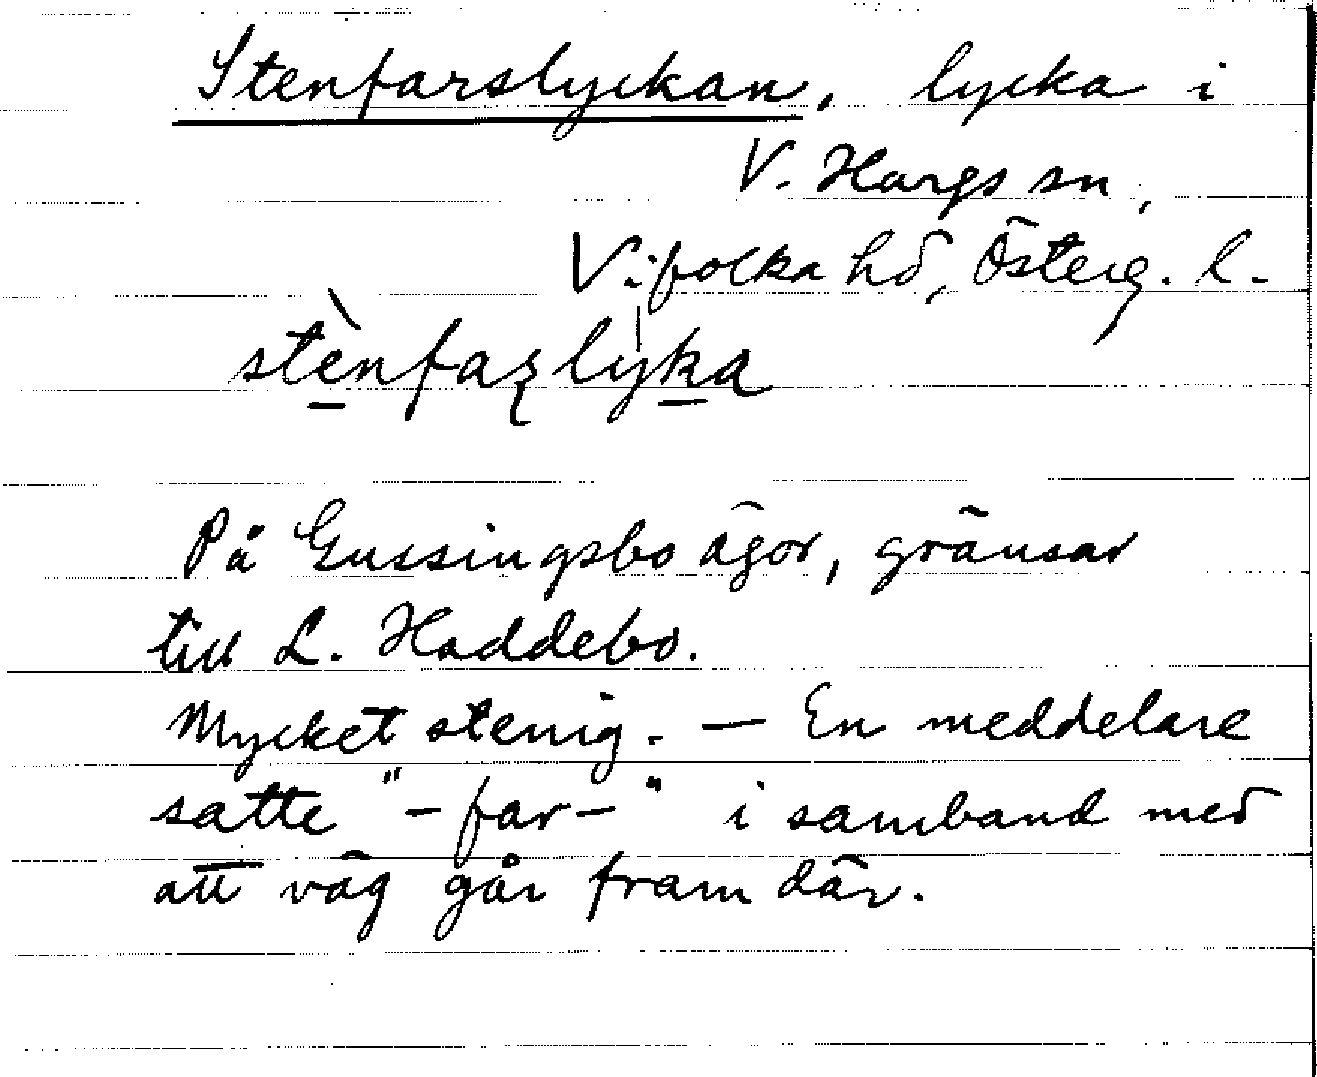 Stenfarslyckan, lycka i
V. Hargs sn,
Vifolka hd, Österg. l.
stènfaʂlyka
På Gussingsbo ägor, gränsar
till L. Haddebo.
Mycket stenig. — En meddelare
satte "-far-" i samband med
att väg går fram där.